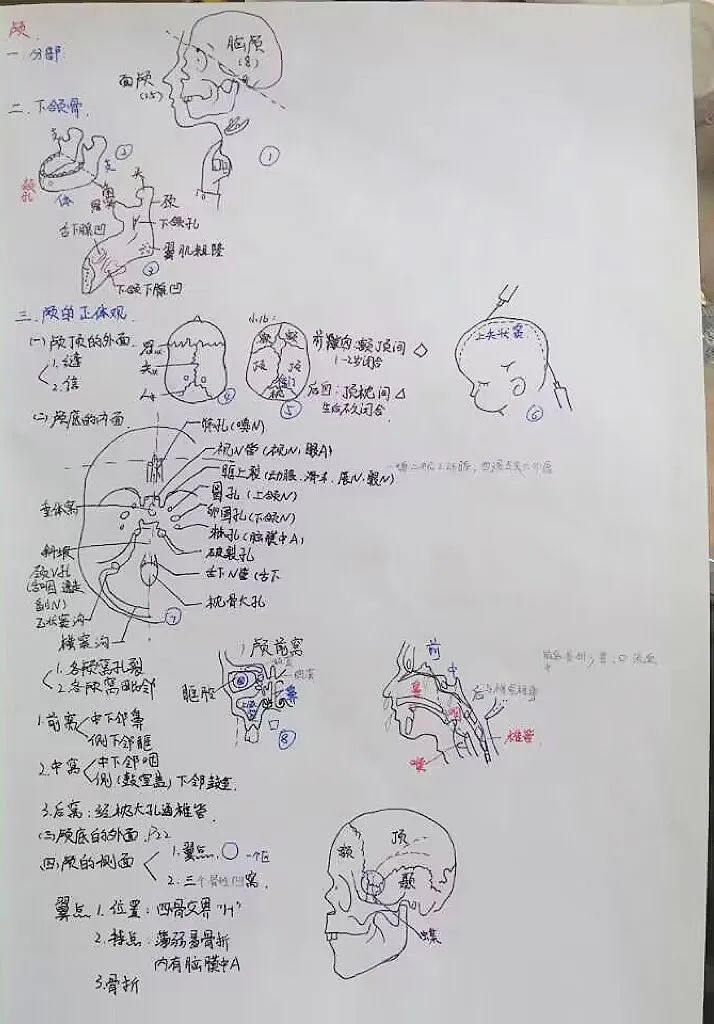 颅
一.分部
脑颅
(8)
面颅
(15)
①
二.下颌骨
支
②
支
颏孔
体
角
头
颈
舌下腺凹
下颌孔
翼肌粗隆
③
下颌下腺凹
三.颅的正体观
(一)颅顶的外面
1.缝
2.囟
冠
矢
人
④
额 额
顶 顶
枕
⑤
前囟:额顶间 ◇
1-2岁闭合
后囟:顶枕间 △
生后不久闭合
上矢状窦
⑥
(二)颅底的内面
筛孔(嗅N)
视N管(视N,眼A)
眶上裂(动眼、滑车、展N,眼N)
圆孔(上颌N)
卵圆孔(下颌N)
棘孔(脑膜中A)
破裂孔
舌下N管(舌下
枕骨大孔
垂体窝
斜坡
颈V孔
(舌咽 迷走
副N)
乙状窦沟
横窦沟
⑦
1.各颅窝孔裂
2.各颅窝毗邻
颅前窝
眶腔
⑧
前
中
后
鼻
咽
喉
椎管
1.前窝 中下邻鼻
侧下邻眶
2.中窝 中下邻咽
侧(鼓室盖)下邻鼓室
3.后窝:经枕大孔通椎管
(三)颅底的外面.P22
四.颅的侧面
1.翼点. 一个区
2.三个骨性凹窝
翼点 1.位置:四骨交界"H"
2.特点:薄弱易骨折
内有脑膜中A
3.骨折
额
顶
颞
蝶